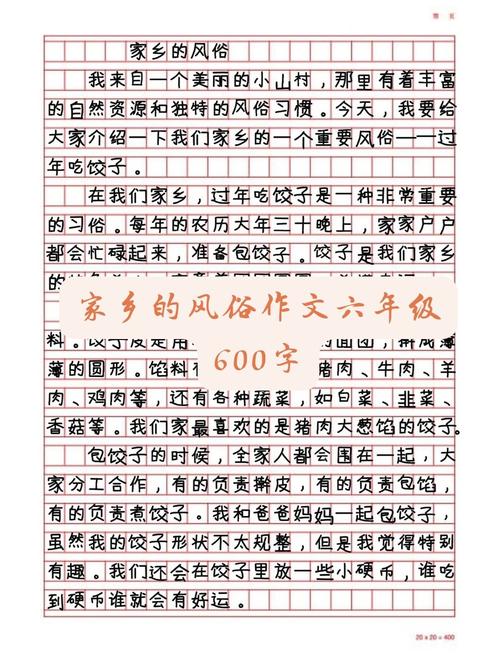 第 页
家乡的风俗
我来自一个美丽的小山村，那里有着丰富
的自然资源和独特的风俗习惯。今天，我要给
大家介绍一下我们家乡的一个重要风俗——过
年吃饺子。
在我们家乡，过年吃饺子是一种非常重要
的习俗。每年的农历大年三十晚上，家家户户
都会忙碌起来，准备包饺子。饺子是我们家乡
家乡的风俗作文六年级
600字
料。饺子皮是用
薄的圆形。馅料有
猪肉、牛肉、羊
肉、鸡肉等，还有各种蔬菜，如白菜、韭菜、
香菇等。我们家最喜欢的是猪肉大葱馅的饺子。
包饺子的时候，全家人都会围在一起，大
家分工合作，有的负责擀皮，有的负责包馅，
有的负责煮饺子。我和爸爸妈妈一起包饺子，
虽然我的饺子形状不太规整，但是我觉得特别
有趣。我们还会在饺子里放一些小硬币，谁吃
到硬币谁就会有好运。
20 x 20 = 400